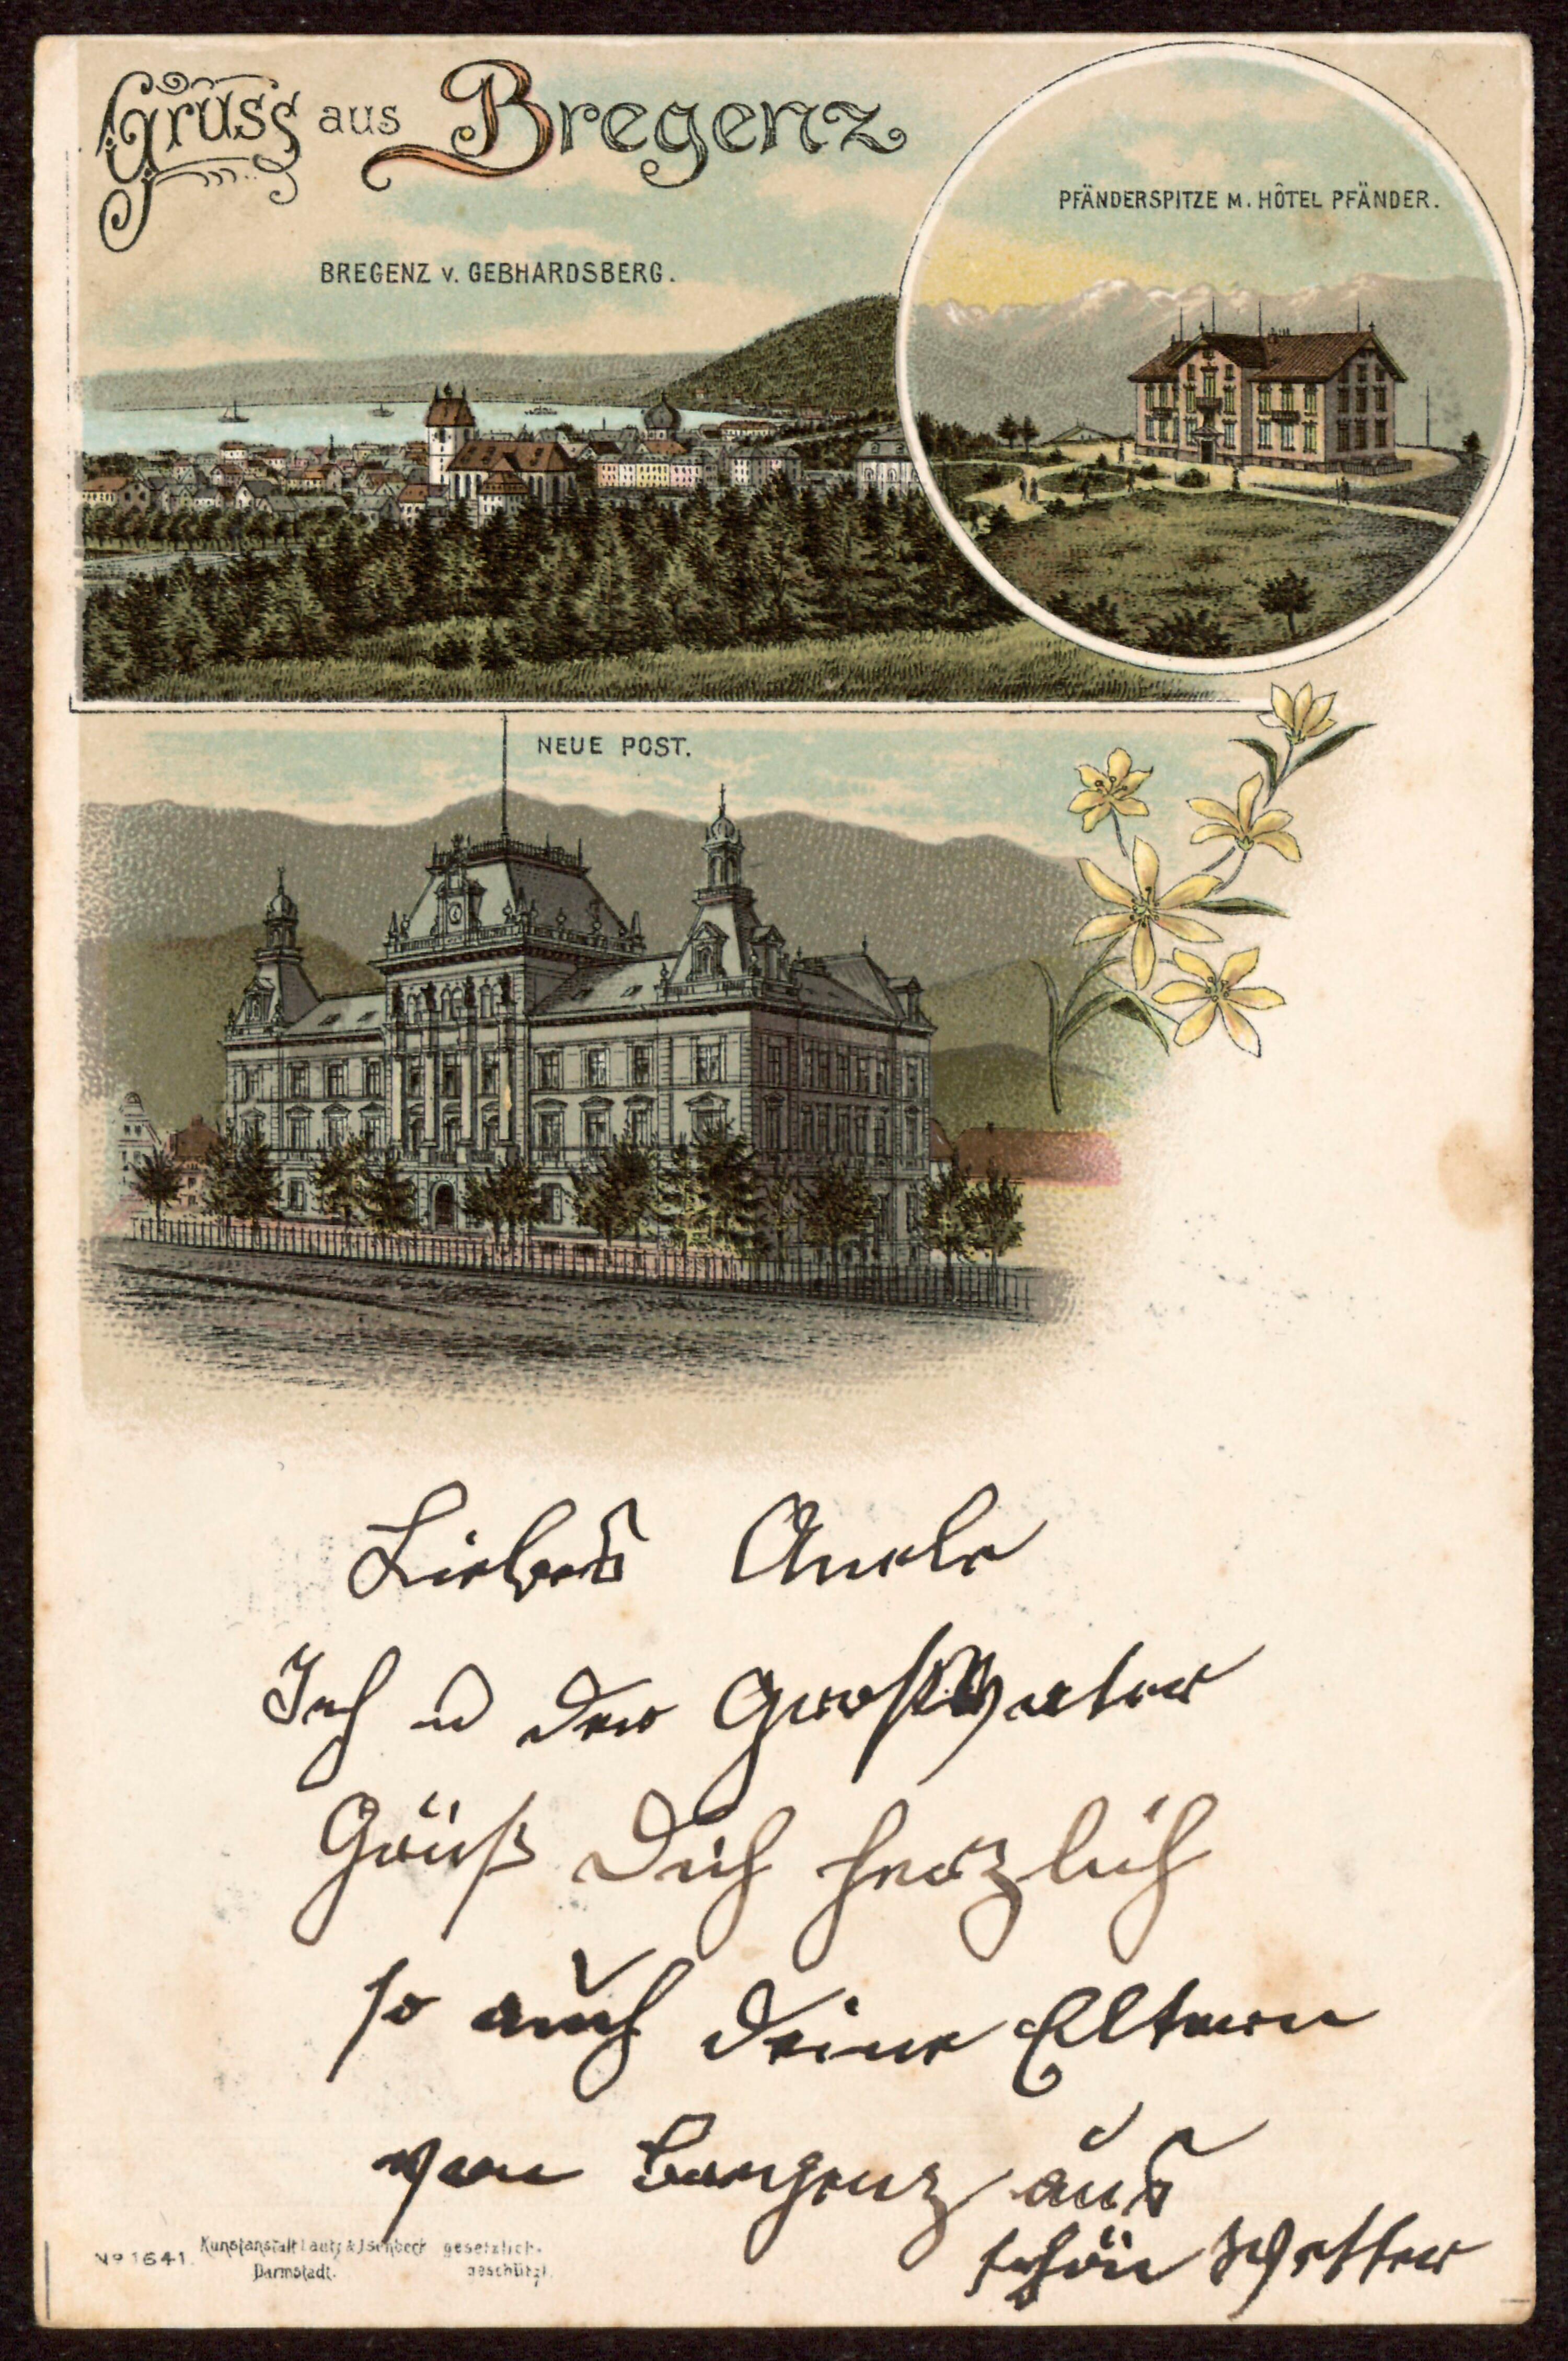 Gruss aus Bregenz
PFÄNDERSPITZE M. HÔTEL PFÄNDER.
BREGENZ v. GEBHARDSBERG.
NEUE POST.
Liebes
Ich u der Großvater
Grüß Dich herzlich
so auch Deine Eltern
von Bregenz aus
schön Wetter
No 1641. Kunstanstalt Lautz & Isenbeck gesetzlich
Darmstadt. geschützt.